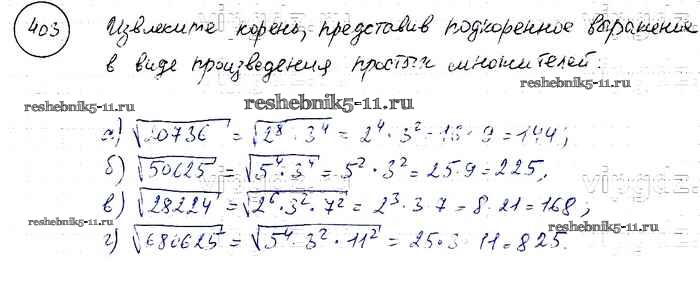 403 Извлеките корень, представив подкоренное выражение
в виде произведения простых множителей.
reshebnik5-11.ru
reshebnik5-11.ru
а) √20736 = √2⁸·3⁴ = 2⁴·3² = 16·9 = 144;
б) √50625 = √5⁴·3⁴ = 5²·3² = 25·9 = 225;
в) √28224 = √2⁶·3²·7² = 2³·3·7 = 8·21 = 168;
reshebnik5-11.ru
reshebnik5-11.ru
г) √680625 = √5⁴·3²·11² = 25·3·11 = 825.